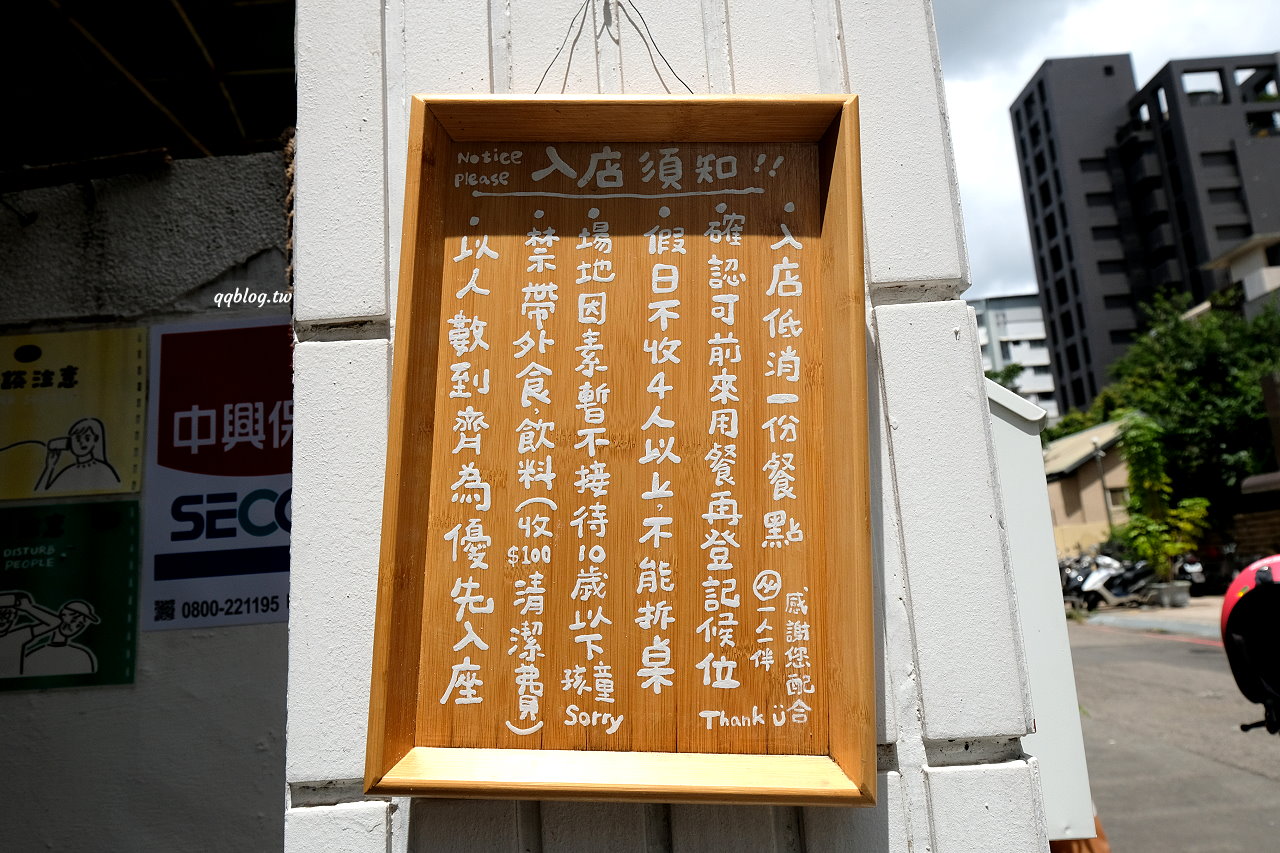 Notice
Please
入店須知!!
•入店低消一份餐點
感謝您配合
一人一伴
•確認可前來用餐再登記候位
Thank ü
•假日不收4人以上,不能拆桌
•場地因素暫不接待10歲以下孩童
Sorry
•禁帶外食,飲料(收$100清潔費)
•以人數到齊為優先入座
qqblog.tw
注意
DISTURB
PEOPLE
中興保
SECO
0800-221195